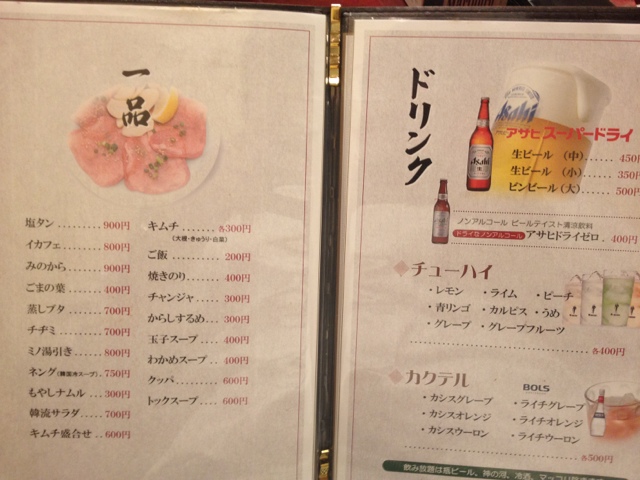 一品
塩タン ......... 900円
イカフェ ........ 800円
みのから ........ 900円
ごまの葉 ........ 400円
蒸しブタ ........ 700円
チヂミ .......... 700円
ミノ湯引き ...... 800円
ネング(韓国冷スープ).. 750円
もやしナムル .... 300円
韓流サラダ ...... 700円
キムチ盛合せ .. 600円
キムチ ........ 各300円
(大根・きゅうり・白菜)
ご飯 ........... 200円
焼きのり ....... 400円
チャンジャ ..... 300円
からしするめ ... 300円
玉子スープ ..... 400円
わかめスープ .. 400円
クッパ ......... 600円
トックスープ .... 600円
ドリンク
Asahi
アサヒスーパードライ
生ビール (中)...... 450
生ビール (小)...... 350円
ビンビール(大)..... 500円
ノンアルコール ビールテイスト清涼飲料
ドライなノンアルコール アサヒドライゼロ . 400円
チューハイ
・レモン ・ライム ・ピーチ
・青リンゴ ・カルピス ・うめ
・グレープ ・グレープフルーツ
各400円
カクテル BOLS
・カシスグレープ ・ライチグレープ
・カシスオレンジ ・ライチオレンジ
・カシスウーロン ・ライチウーロン
各500円
飲み放題は瓶ビール、